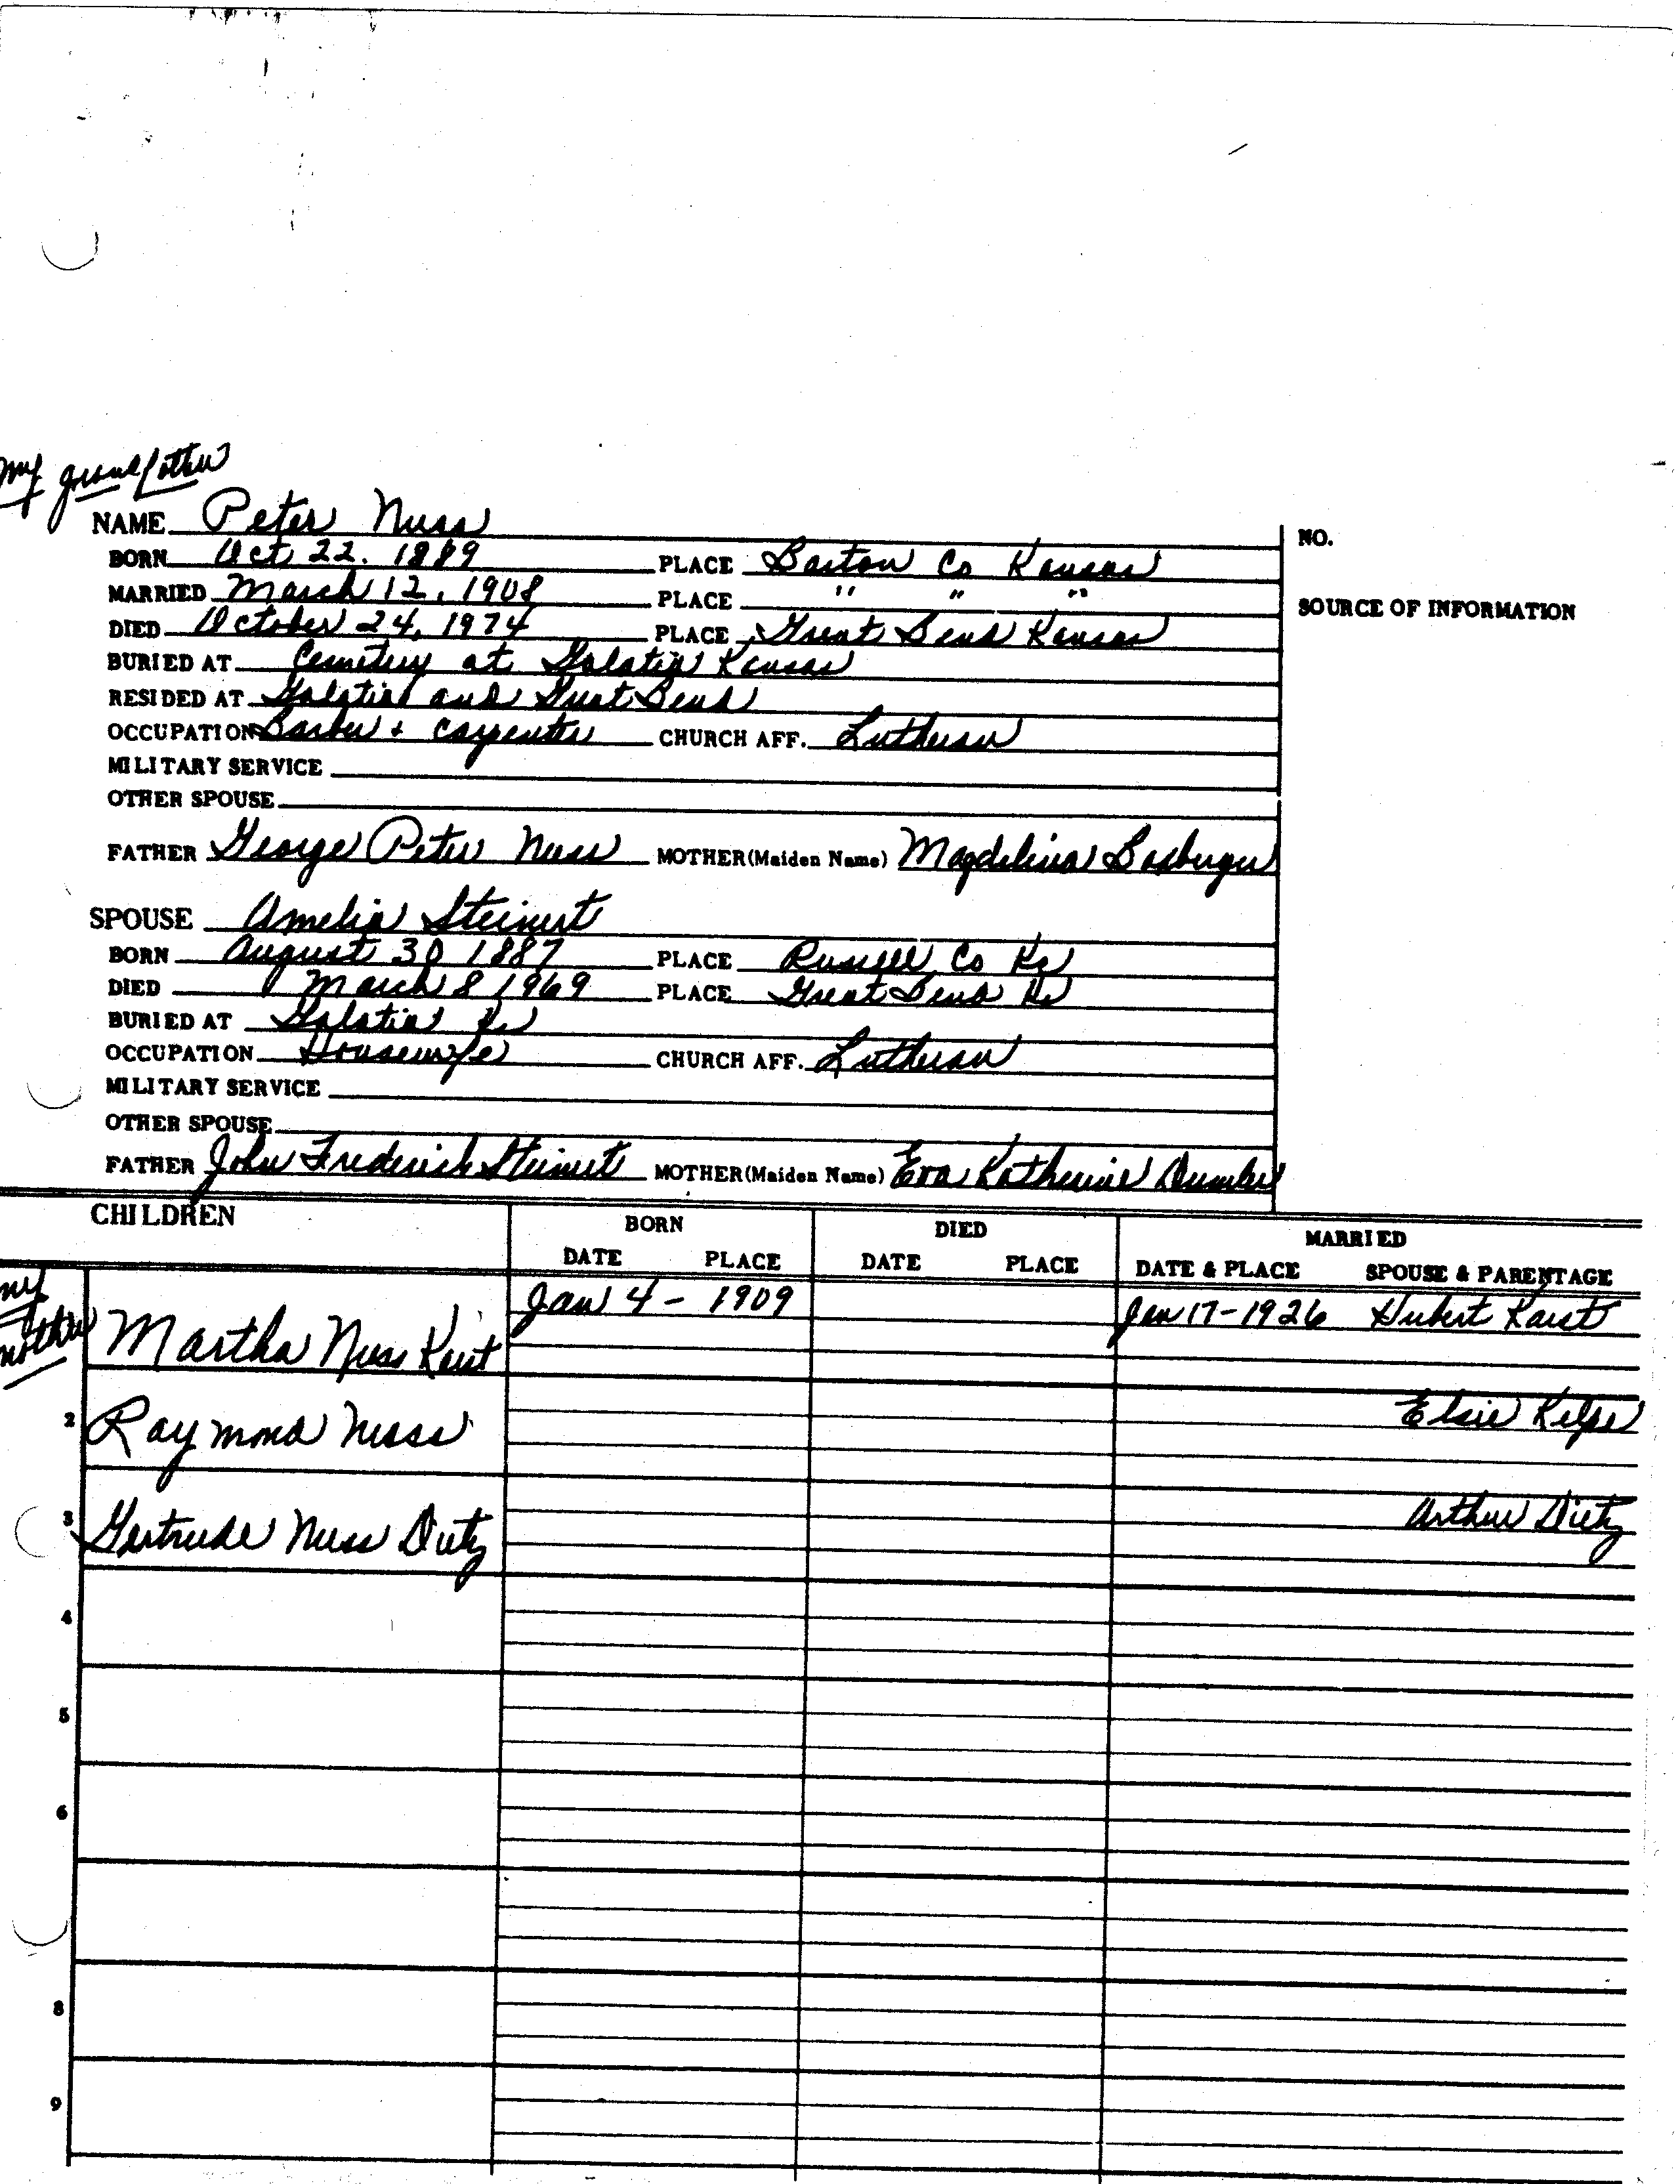 my grandfather
NAME Peter Nuss
NO.
BORN Oct 22. 1889 PLACE Barton Co Kansas
MARRIED March 12, 1908 PLACE " " "
SOURCE OF INFORMATION
DIED October 24, 1974 PLACE Great Bend Kansas
BURIED AT Cemetery at Galatia Kansas
RESIDED AT Galatia and Great Bend
OCCUPATION Barber + Carpenter CHURCH AFF. Lutheran
MILITARY SERVICE
OTHER SPOUSE
FATHER George Peter Nuss MOTHER (Maiden Name) Magdelina Bosburger
SPOUSE Amelia Steinert
BORN August 30 1887 PLACE Russell Co Ks
DIED March 8 1969 PLACE Great Bend Ks
BURIED AT Galatia Ks
OCCUPATION Housewife CHURCH AFF. Lutheran
MILITARY SERVICE
OTHER SPOUSE
FATHER John Frederick Steinert MOTHER (Maiden Name) Eva Katherine Dumler
CHILDREN BORN DIED MARRIED
DATE PLACE DATE PLACE DATE & PLACE SPOUSE & PARENTAGE
my mother
Martha Nuss Karst Jan 4 - 1909 Jan 17 - 1926 Hubert Karst
2 Raymond Nuss Elsie Kelpe
3 Gertrude Nuss Dietz Arthur Dietz
4
5
6
8
9